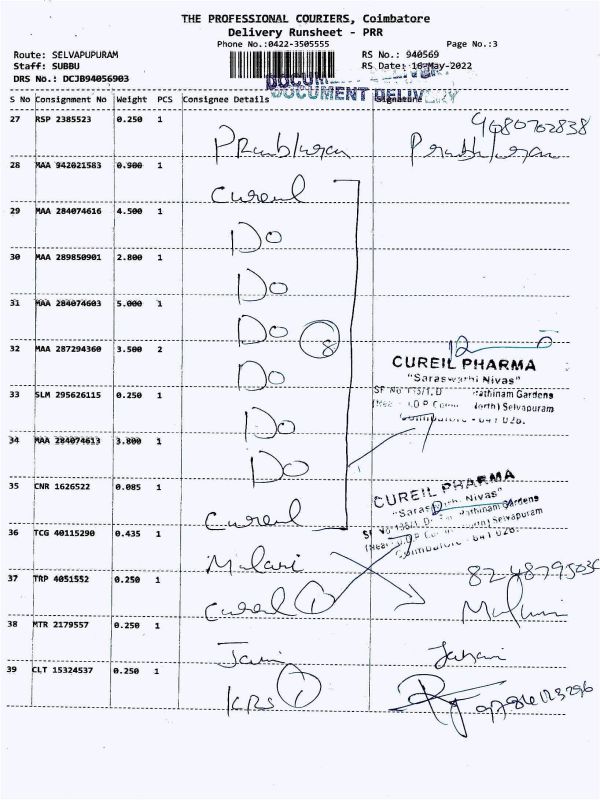 THE PROFESSIONAL COURIERS, Coimbatore
Delivery Runsheet - PRR
Phone No.:0422-3505555
Page No.:3
Route: SELVAPUPURAM
RS No.: 940569
Staff: SUBBU
RS Date: 16-May-2022
DRS No.: DCJB94056903
DOCUMENT DELIVERY
DOCUMENT DELIVERY
S No Consignment No Weight PCS Consignee Details Signature
27 RSP 2385523 0.250 1
9080702838
Prabhuram
28 MAA 942021583 0.900 1
Cureil
29 MAA 284074616 4.500 1
Do
30 MAA 289850901 2.800 1
Do
31 MAA 284074603 5.000 1
Do 8
32 MAA 287294360 3.500 2
Do
CUREIL PHARMA
"Saraswathi Nivas"
33 SLM 295626115 0.250 1
Pathinam Gardens
Do
Selvapuram
34 MAA 284074613 3.800 1
Coimbatore - 641 026.
Do
35 CNR 1626522 0.085 1
CUREIL PHARMA
Nivas"
Cureil
Pathinam Gardens
36 TCG 40115290 0.435 1
Selvapuram
Coimbatore - 641 026.
Malari
37 TRP 4051552 0.250 1
Cureil 1
38 MTR 2179557 0.250 1
39 CLT 15324537 0.250 1
KRS 1